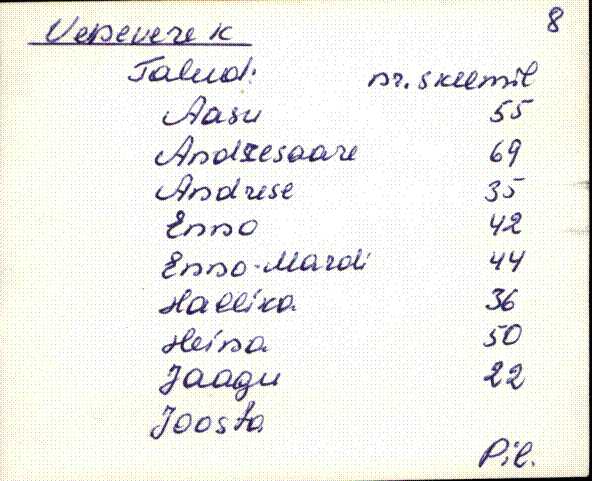 Vepevere k 8
Talud: nr. skeemil
Aasu 55
Andresaare 69
Andrese 35
Enno 42
Enno-Mardi 44
Hallika 36
Heina 50
Jaagu 22
Joosta
Pil.